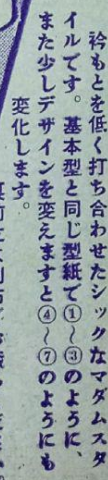 衿もとを低く打ち合わせたシックなマダムスタ
イルです。基本型と同じ型紙で①〜③のように、
また少しデザインを変えますと④〜⑦のようにも
変化します。